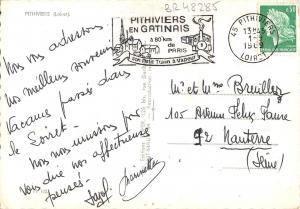 PITHIVIERS (Loiret)
BR48285
PITHIVIERS
EN GATINAIS
à 80 km
de
PARIS
son Petit Train à Vapeur
45 PITHIVIERS
1969
LOIRET
Nous vous adressons
nos meilleurs souvenirs
vacances passées dans
le Loiret
Nous nous unissons pour
vous dire nos affectueuses
pensées.
Mr et Mme
105 Avenue Félix Faure
92 Nanterre
(Seine)